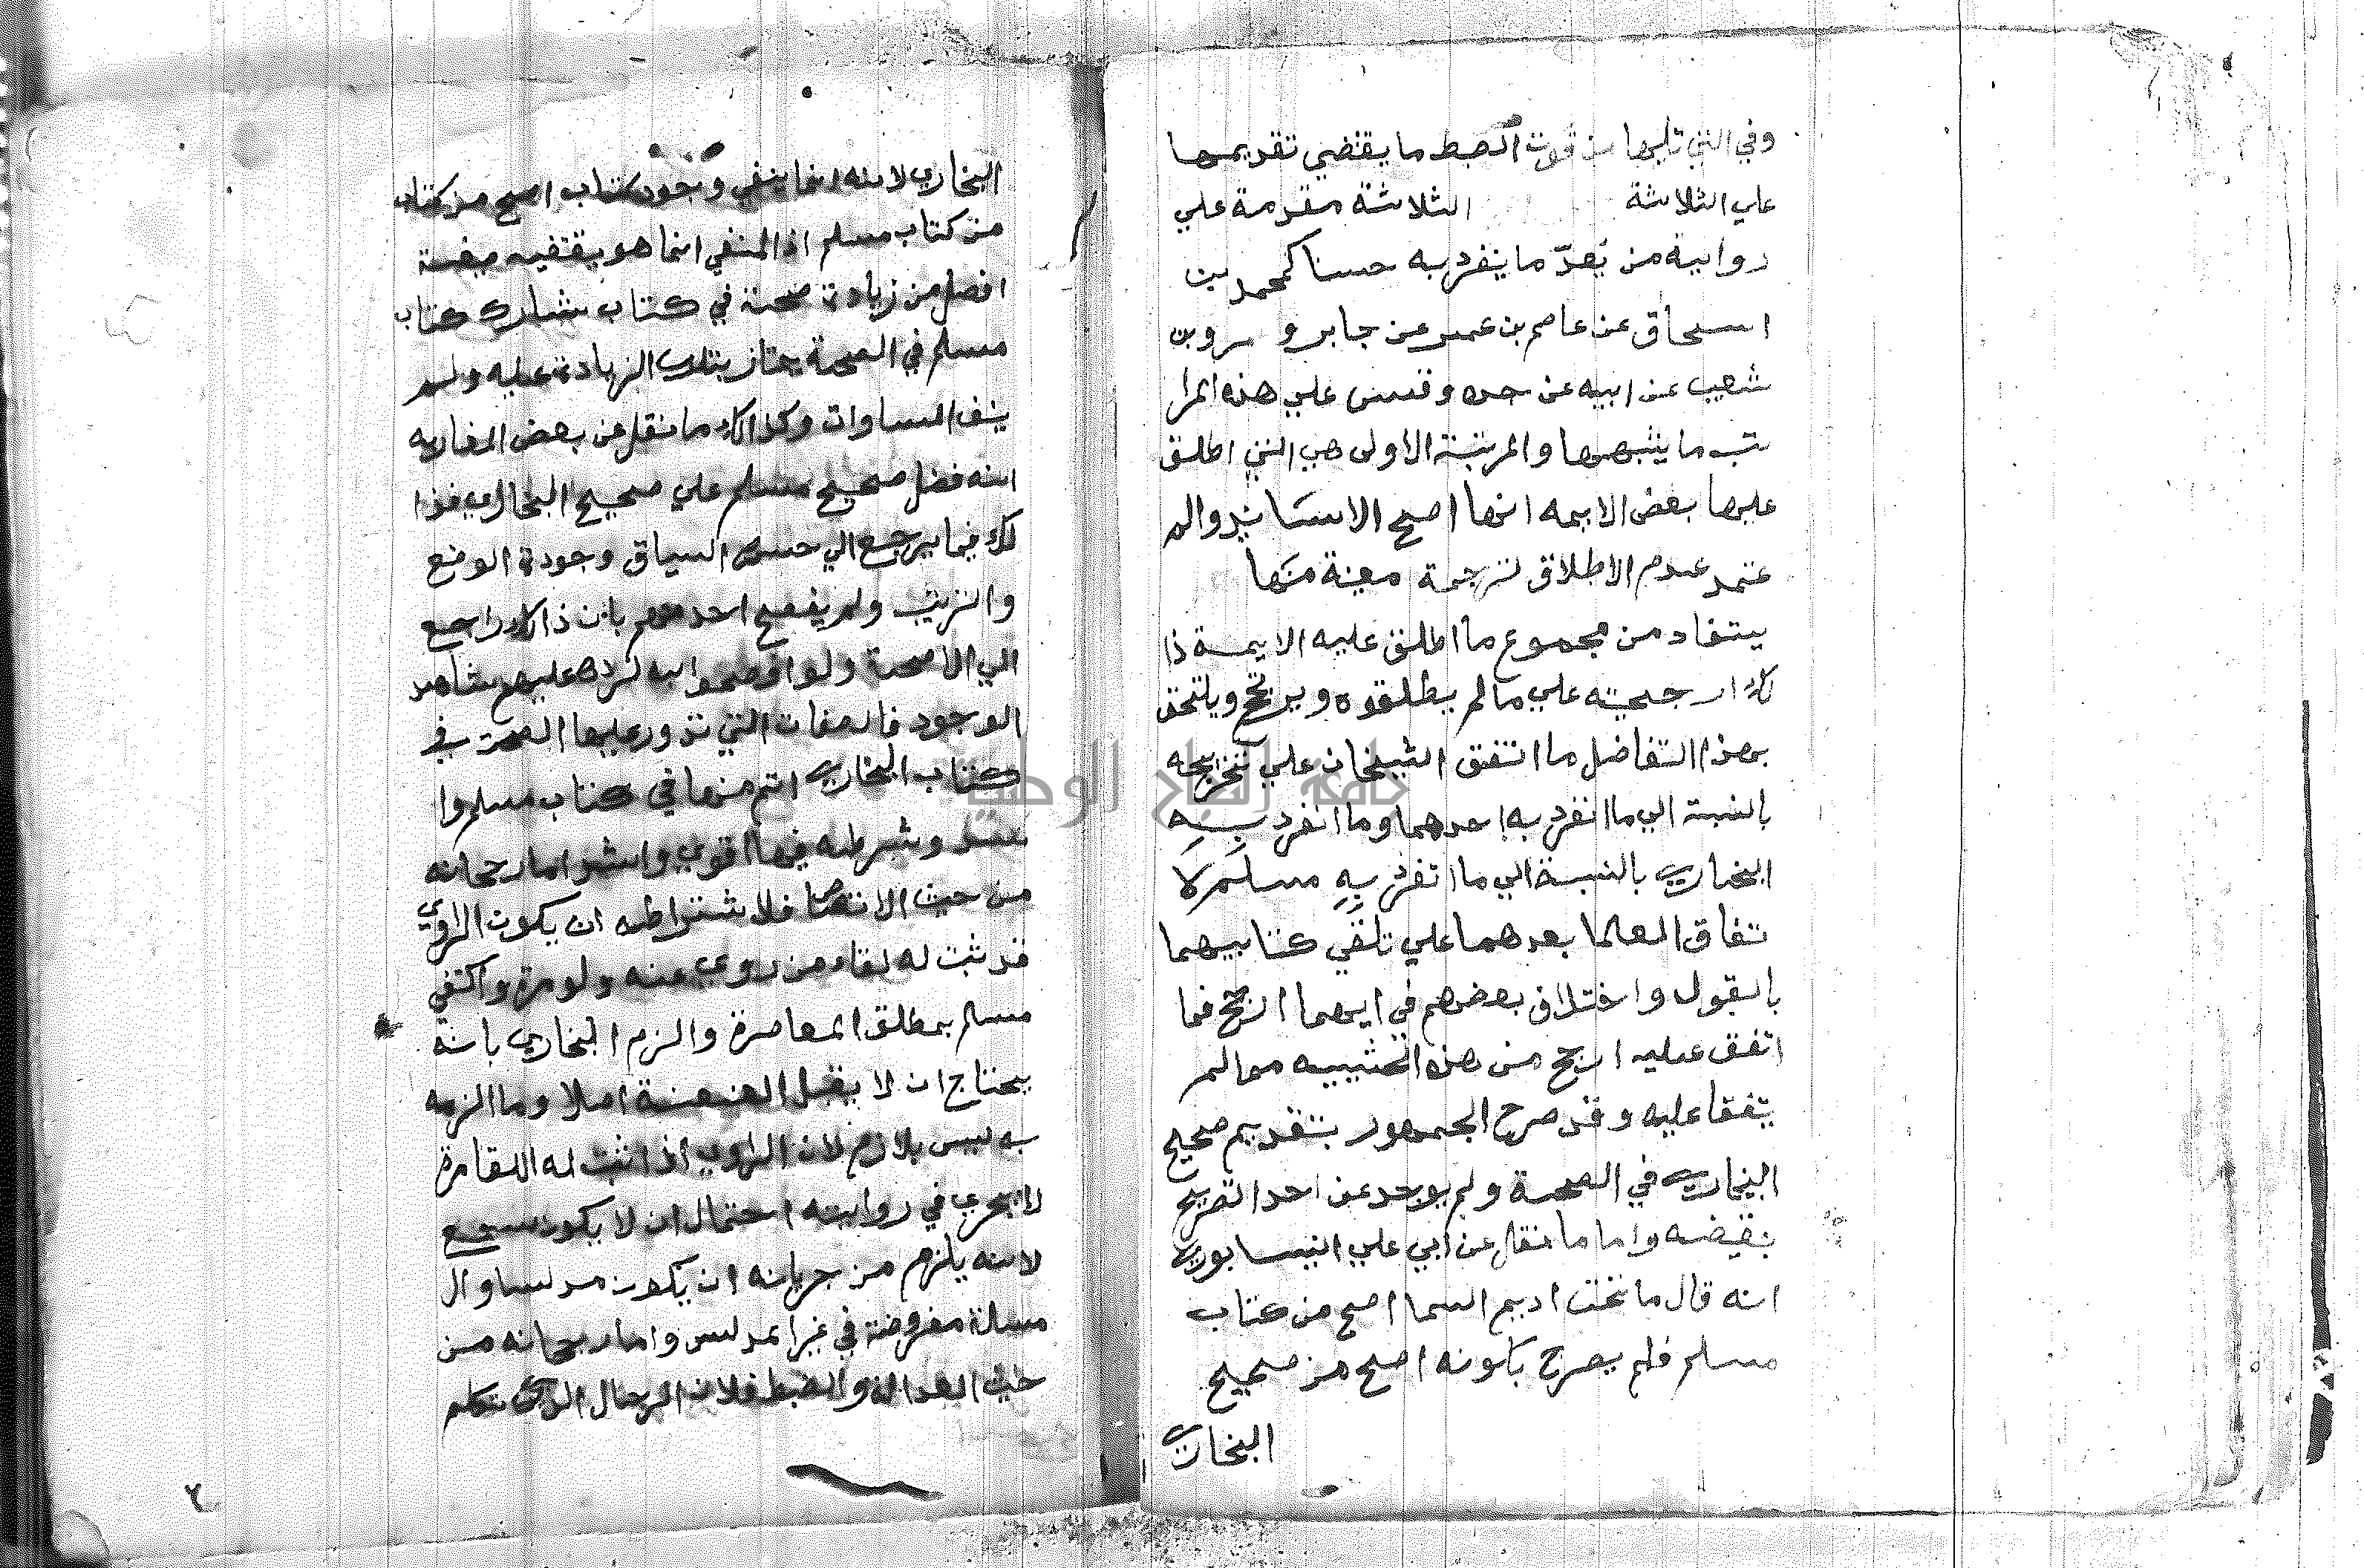 وفي التي تليها من قوت الضبط ما يقتضي تقديمها
علي الثلاثة الثلاثة مقدمة علي
رواية من يُعدّ ما ينفرد به حسنا كمحمد بن
اسحاق عن عاصم بن عمر عن جابر و عمرو بن
شعيب عن ابيه عن جده وقس علي هذه المرا
تب ما يشبهها والمرتبة الاولى هي التي اطلق
عليها بعض الايمه انها اصح الاسانيد والم
عتمد عدم الاطلاق لترجمة معينة منها
يستفاد من مجموع ما اطلق عليه الايمة ذا
لك ارجحيته علي ما لم يطلقوه ويرجح ويلتحق
بهذا التفاضل ما اتفق الشيخان علي تخريجه
بالنسبة الي ما انفرد به احدهما وما انفرد بِهِ
البخاري بالنسبة الي ما انفرد بِهِ مسلم لا
تفاق العلما بعدهما علي تلقي كتابيهما
بالقبول واختلاف بعضهم في ايهما ارجح فما
اتفق عليه ارجح من هذه الحثييه مما لم
يتفقا عليه وقد صرح الجمهور بتقديم صحيح
البخاري في الصحة ولم يوجد عن احد التصريح
بنقيضه واما ما نقل عن ابي علي النيسابوري
انه قال ما تحت اديم السما اصح من كتاب
مسلم فلم يصرح بكونه اصح من صحيح
البخاري
البخاري لانه انما ينفي وجود كتاب اصح من كتاب
من كتاب مسلم اذ المنفي انما هو يقتفيه صيغة
افضل من زيادة صحة في كتاب شارك كتاب
مسلم في الصحة يمتاز بتلك الزيادة عليه ولم
ينف المساوات وكذالك ما نقل عن بعض المغاربه
انه فضل صحيح مسلم علي صحيح البخاري فذا
لك فيما يرجع الي حسن السياق وجودة الوضع
والترتيب ولم يفصح احد منهم بان ذالك راجع
الي الاصحية ولو افصحوا به لرده عليهم شاهد
الوجود فالصفات التي تدور عليها الصحة في
كتاب البخاري اتم منها في كتاب مسلم وا
شد وشرطه فيها اقوي واشد اما رجحانه
من حيث الاتصال فلاشتراطه ان يكون الراوي
قد ثبت له لقاء من روي عنه ولو مرة واكتفي
مسلم بمطلق المعاصرة والزم البخاري بانه
يحتاج ان لا يقبل العنعنة اصلا وما الزمه
به ليس بلازم لان الراوي اذا ثبت له اللقا مرة
لا يجري في روايته احتمال ان لا يكون سمع
لانه يلزم من جريانه ان يكون مدلسا وال
مسالة مفروضة في غير المدلس واما رجحانه من
حيث العدالة والضبط فلان الرجال الذي تكلم
٢
جامعة النجاح الوطنية